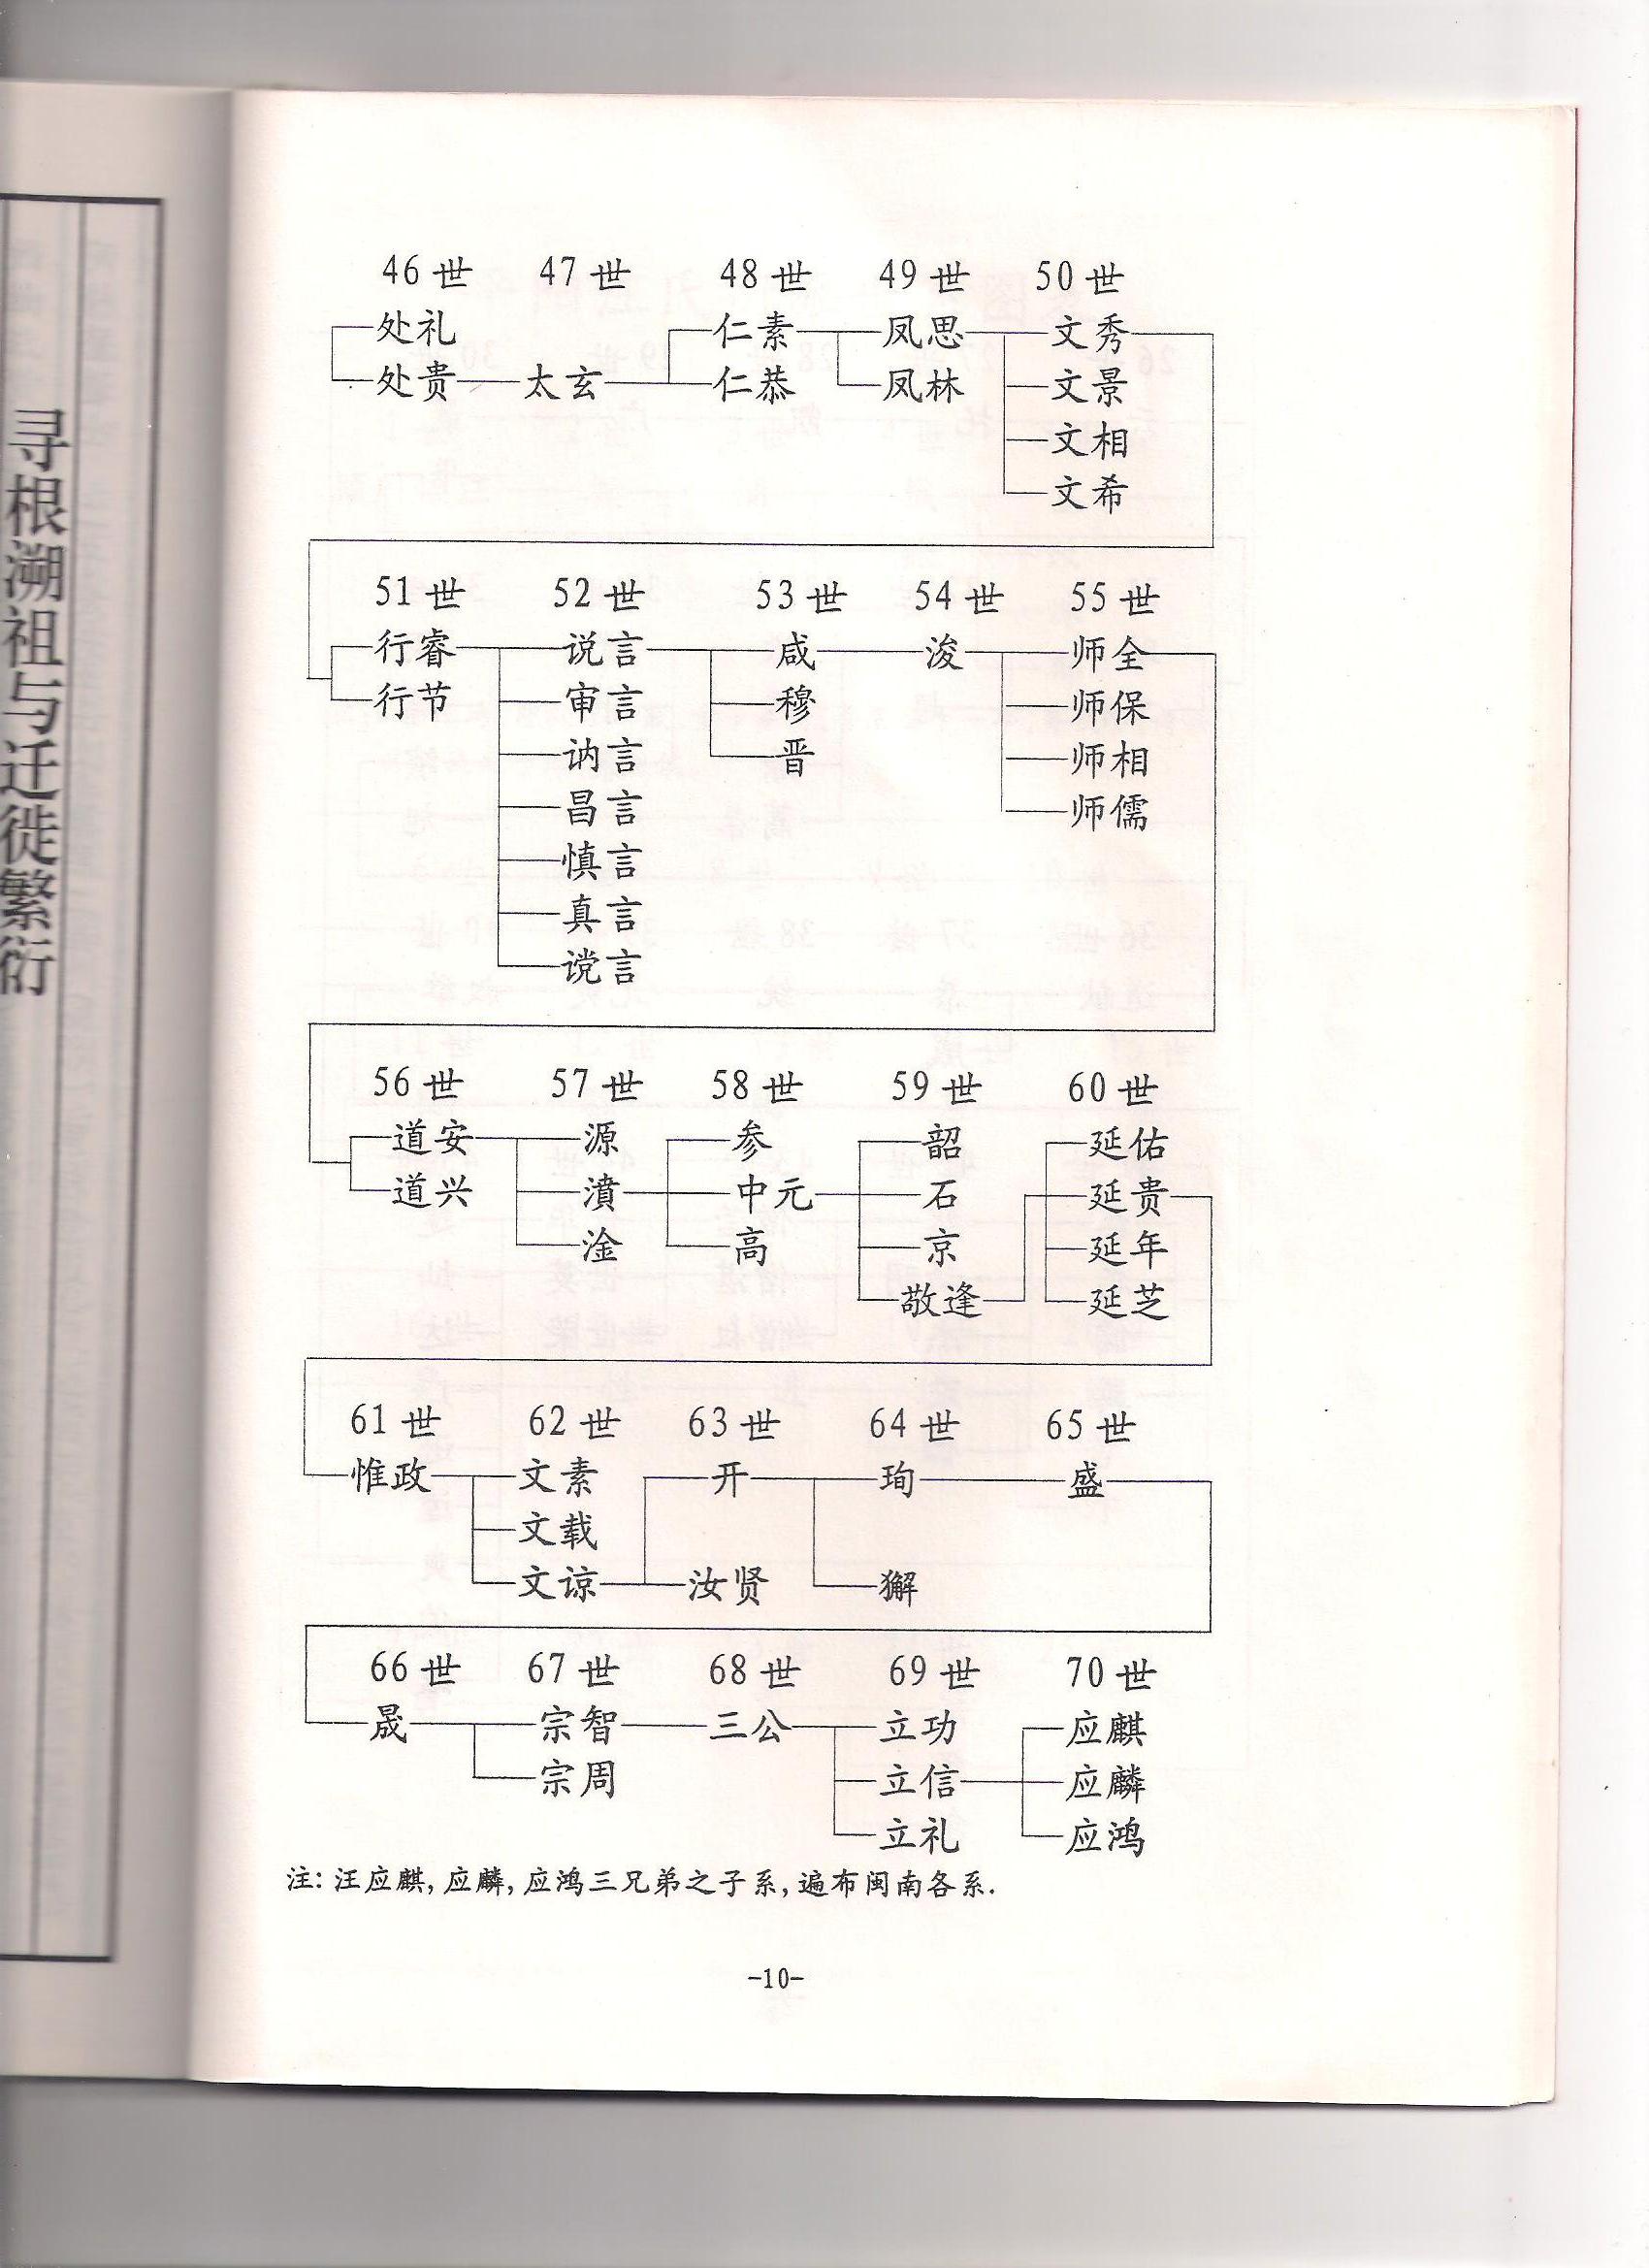 寻根溯祖与迁徙繁衍
46世 47世 48世 49世 50世
处礼 仁素 凤思 文秀
处贵 太玄 仁恭 凤林 文景
文相
文希
51世 52世 53世 54世 55世
行睿 说言 咸 浚 师全
行节 审言 穆 师保
讷言 晋 师相
昌言 师儒
慎言
真言
谠言
56世 57世 58世 59世 60世
道安 源 参 韶 延佑
道兴 濆 中元 石 延贵
淦 高 京 延年
敬逢 延芝
61世 62世 63世 64世 65世
惟政 文素 开 珣 盛
文载
文谅 汝贤 獬
66世 67世 68世 69世 70世
晟 宗智 三公 立功 应麒
宗周 立信 应麟
立礼 应鸿
注: 汪应麒, 应麟, 应鸿三兄弟之子系, 遍布闽南各系.
-10-